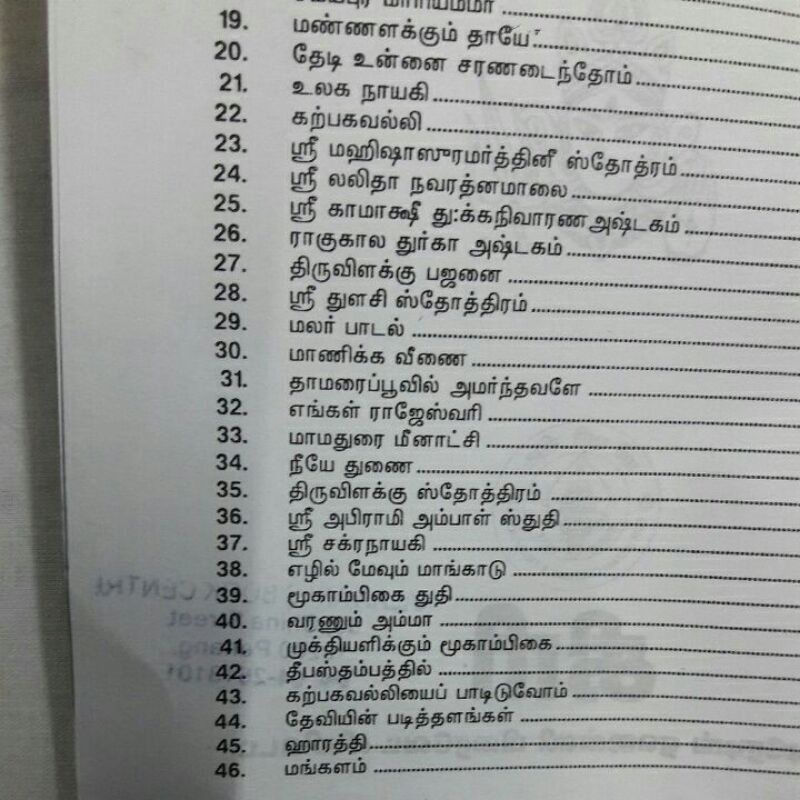 19. மண்ணளக்கும் தாயே
20. தேடி உன்னை சரணடைந்தோம்
21. உலக நாயகி
22. கற்பகவல்லி
23. ஸ்ரீ மஹிஷாஸுரமர்த்தினீ ஸ்தோத்ரம்
24. ஸ்ரீ லலிதா நவரத்னமாலை
25. ஸ்ரீ காமாக்ஷீ து:க்கநிவாரண அஷ்டகம்
26. ராகுகால துர்கா அஷ்டகம்
27. திருவிளக்கு பஜனை
28. ஸ்ரீ துளசி ஸ்தோத்திரம்
29. மலர் பாடல்
30. மாணிக்க வீணை
31. தாமரைப்பூவில் அமர்ந்தவளே
32. எங்கள் ராஜேஸ்வரி
33. மாமதுரை மீனாட்சி
34. நீயே துணை
35. திருவிளக்கு ஸ்தோத்திரம்
36. ஸ்ரீ அபிராமி அம்பாள் ஸ்துதி
37. ஸ்ரீ சக்ரநாயகி
38. எழில் மேவும் மாங்காடு
39. மூகாம்பிகை துதி
40. வரணும் அம்மா
41. முக்தியளிக்கும் மூகாம்பிகை
42. தீபஸ்தம்பத்தில்
43. கற்பகவல்லியைப் பாடிடுவோம்
44. தேவியின் படித்தளங்கள்
45. ஹாரத்தி
46. மங்களம்